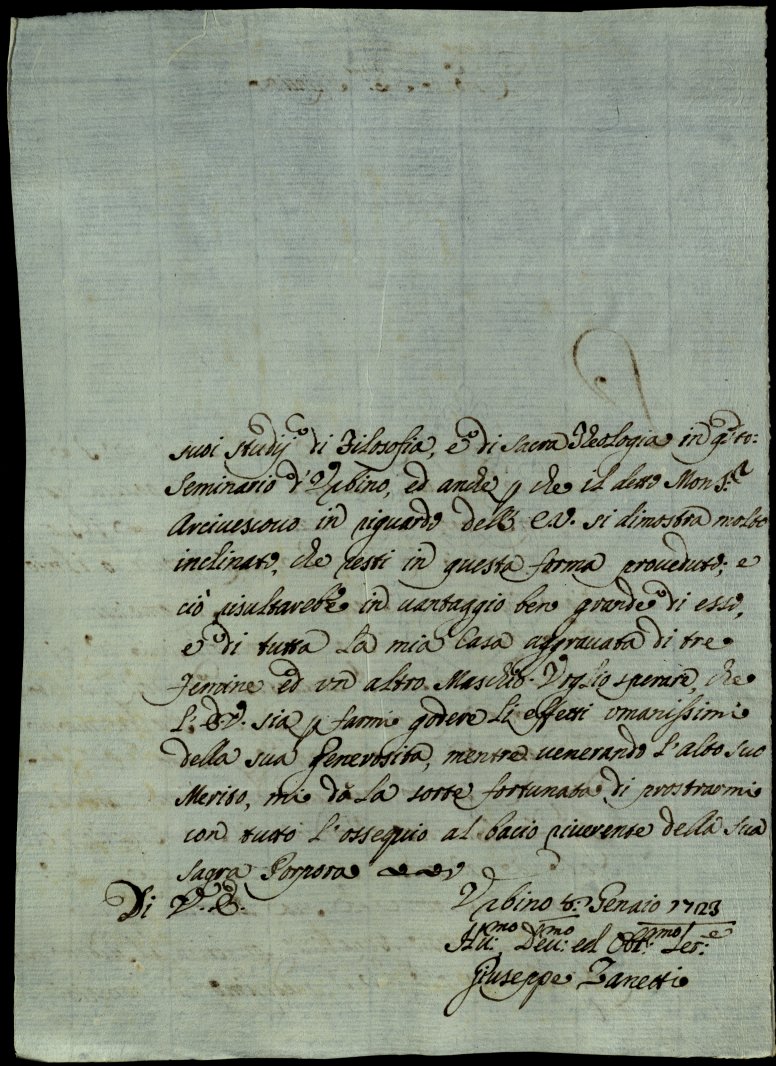 suoi studij di Filosofia, e di sacra Theologia in q.to
Seminario d'Urbino, ed anche p che il detto Mons.r
Arciuescouo in riguardo dell' E.V. si dimostra molto
inclinato, che resti in questa forma proueduto; e
ciò risultarebe in uantaggio ben grande di esso,
e di tutta la mia Casa aggrauata di tre
femine ed un altro Maschio. Voglio sperare, che
l'E.V. sia p farmi godere li effetti umanissimi
della sua generosità, mentre uenerando l'alto suo
Merito, mi dà la sorte fortunata di prostrarmi
con tutto l'ossequio al bacio riuerente della sua
sagra Porpora
Di V. E.
Urbino Genaio 1723
Hu:mo Deu:mo ed Obl:mo Ser:e
Giuseppe Zanetti